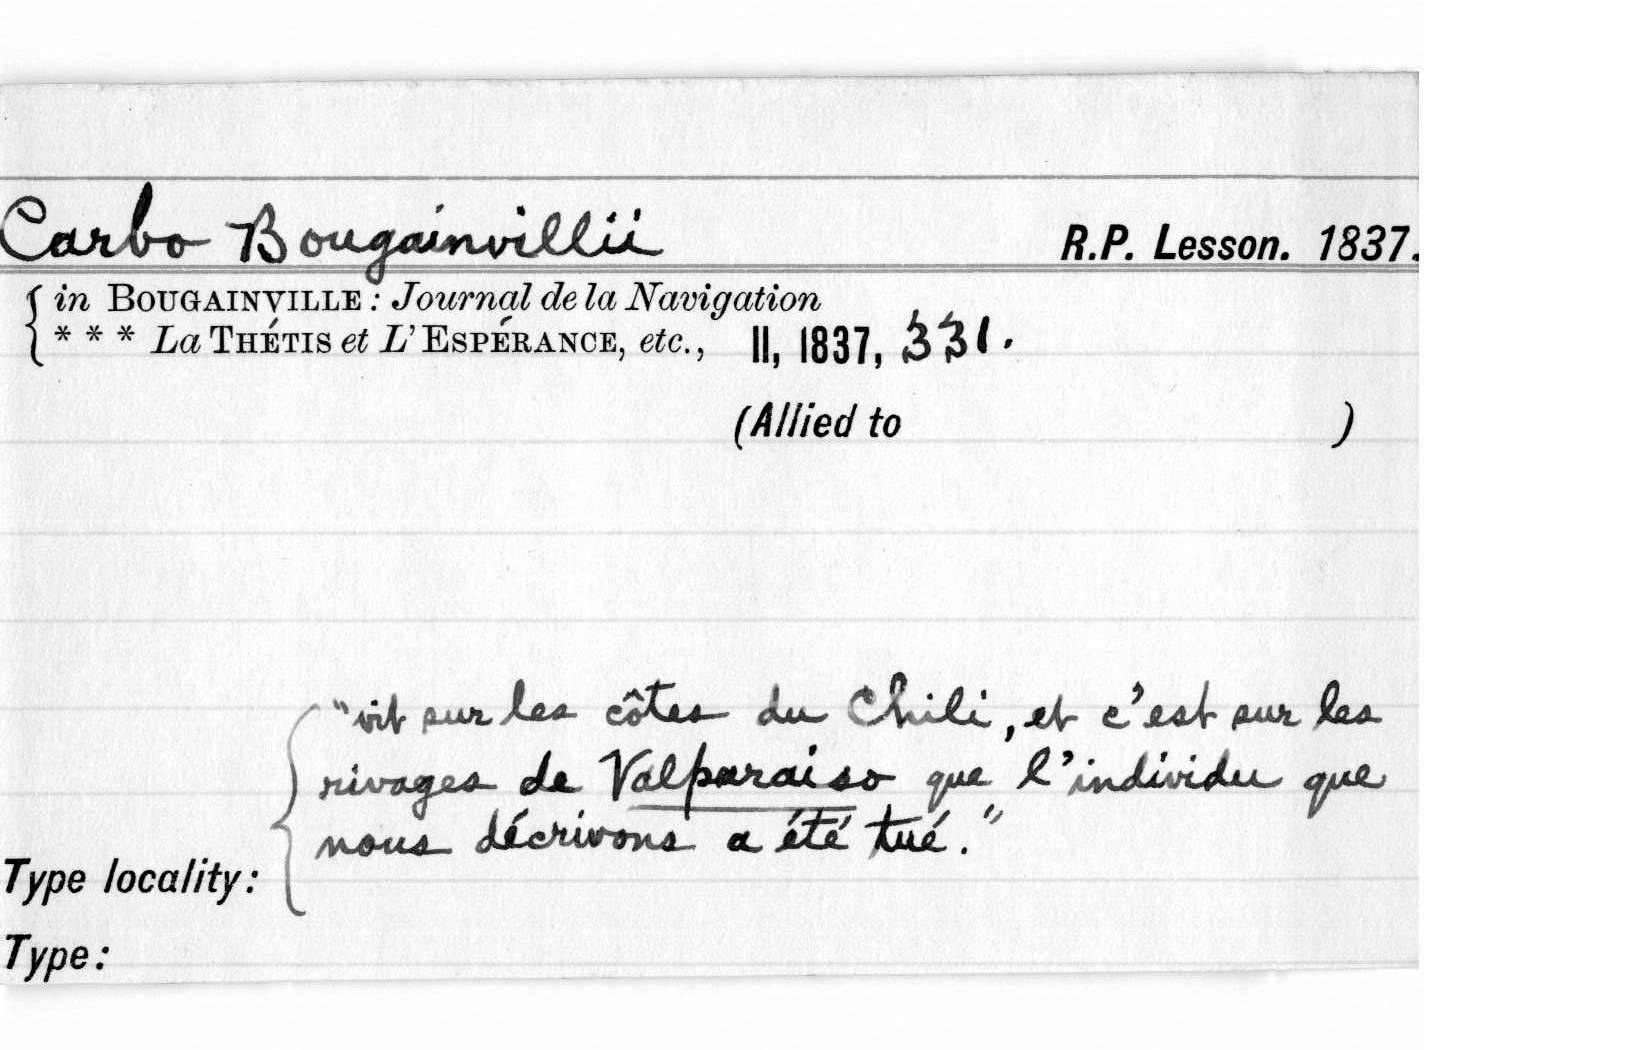 Carbo Bougainvillii R.P. Lesson. 1837.
in BOUGAINVILLE: Journal de la Navigation
* * * La THÉTIS et L'ESPÉRANCE, etc., II, 1837, 331.
(Allied to )
"vit sur les côtes du Chili, et c'est sur les
rivages de Valparaiso que l'individu que
nous décrivons a été tué."
Type locality:
Type: